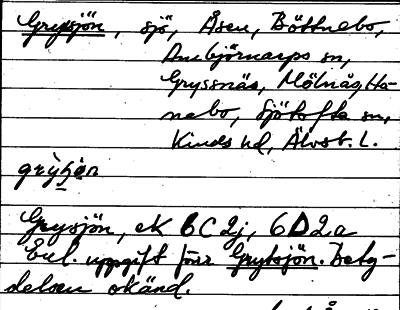 Grytsjön, sjö, Åsen, Böttnebo,
Ambjörnarps sn,
Gryssnäs, MölnågHa-
nabo, Sjötofta sn,
Kinds hd, Älvsb. L.
Grysjön, ek 6C2j, 6D2a
Enl. uppgift förr Grytsjön. Bety-
delsen okänd.